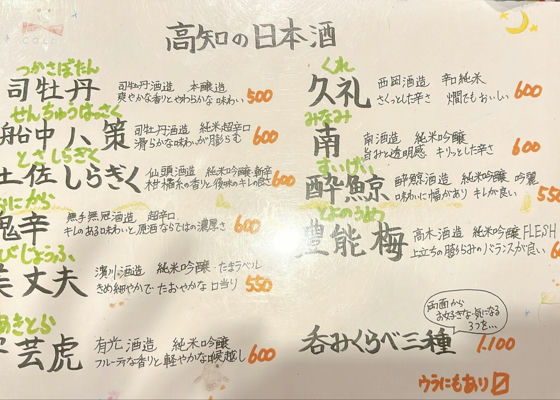 高知の日本酒
つかさぼたん
司牡丹
司牡丹酒造 本醸造
爽やかな香りとやわらかな味わい
500
せんちゅうはっさく
船中八策
司牡丹酒造 純米超辛口
滑らかな味わいが膨らむ
600
とさしらぎく
土佐しらぎく
仙頭酒造 純米吟醸・斬辛
柑橘系の香りと後味のキレの良さ
600
おにから
鬼辛
無手無冠酒造 超辛口
キレのある味わいと原酒ならではの濃厚さ
600
びじょうふ
美丈夫
濱川酒造 純米吟醸 たまラベル
きめ細やかで たおやかな 口当り
550
あきとら
安芸虎
有光酒造 純米吟醸
フルーティな香りと軽やかな喉越し
600
くれ
久礼
西岡酒造 辛口純米
さくっとした辛さ 燗でもおいしい
600
みなみ
南
南酒造 純米吟醸
旨みと透明感 キリッとした辛さ
600
すいげい
酔鯨
酔鯨酒造 純米吟醸 吟麗
味わいに幅があり キレが良い
550
とよのうめ
豊能梅
高木酒造 純米吟醸 FLESH
上立ちの膨らみのバランスが良い
両面から
お好きな・気になる
3つを…
呑みくらべ三種
1,100
ウラにもあり